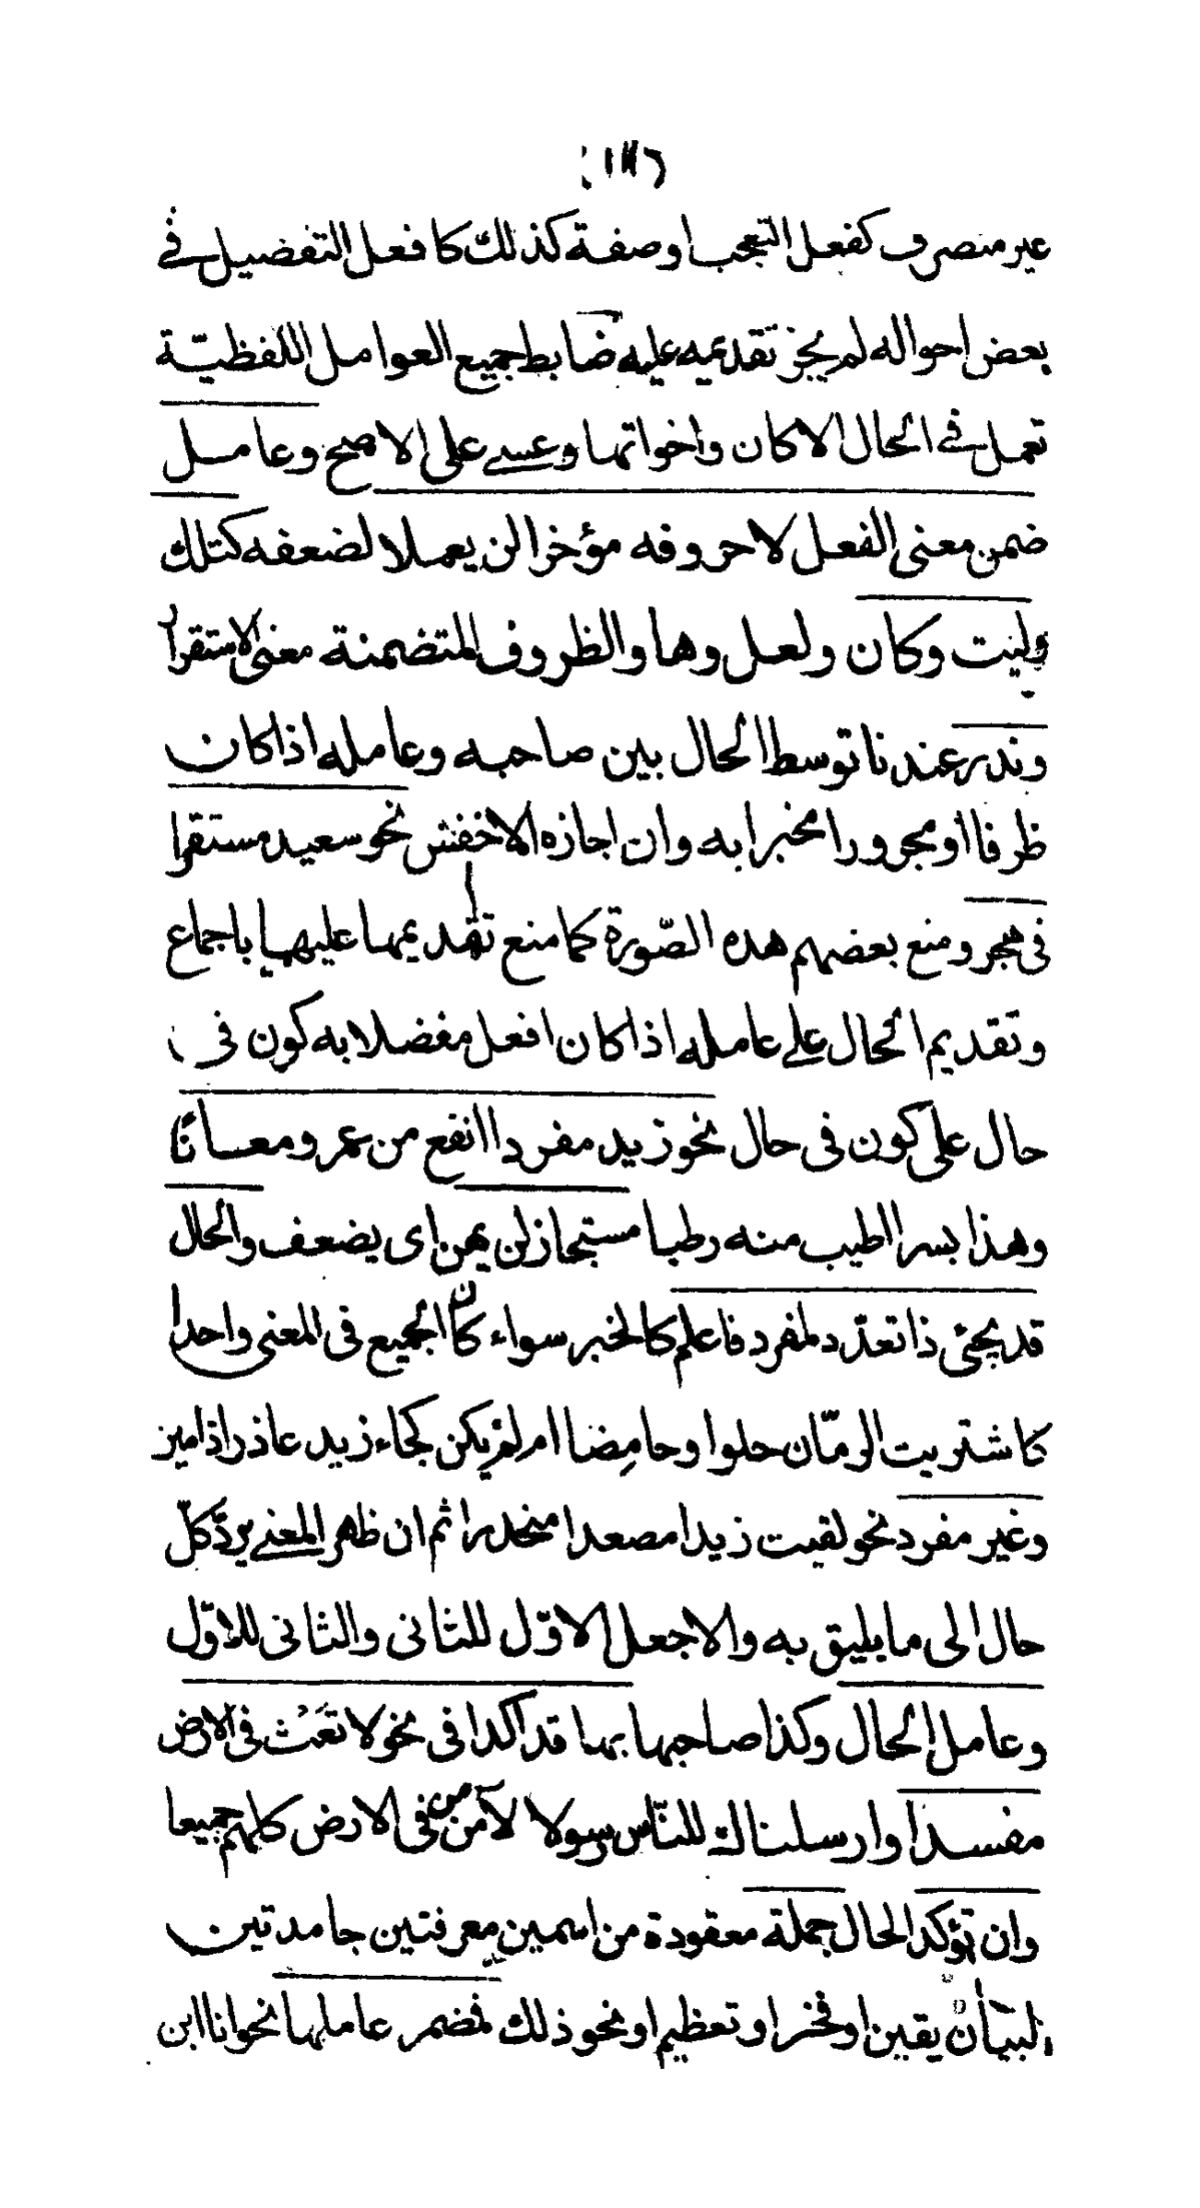 غير منصرف كفعل التعجب او صفة كذلك كافعل التفضيل فى
بعض احواله لم يجز تقديمه عليه ضابط جميع العوامل اللفظيّة
تعمل فى الحال الا كان واخواتها وعسى على الاصح وعامل
ضمن معنى الفعل لا حروفه مؤخرا لن يعملا لضعفه كتلك
وليت وكان ولعل وها والظروف المتضمنة معنى الاستقرار
وندر عندنا توسط الحال بين صاحبه وعامله اذا كان
ظرفا او مجرورا مخبرا به وان اجازه الاخفش نحو سعيد مستقرا
فى هجر ومنع بعضهم هذه الصّورة كما منع تقديمها عليهما باجماع
وتقديم الحال على عامله اذا كان افعل مفضلا به كون فى
حال على كون فى حال نحو زيد مفردا انفع من عمرو معانًا
وهذا بسرا اطيب منه رطبا مستجاز لن يهن اى يضعف والحال
قد يجئ ذا تعدّد لمفرد فاعلم كالخبر سواء كان الجميع فى المعنى واحدا
كاشتريت الرمّان حلوا وحامضا ام لم يكن كجاء زيد عاذرا ذامين
وغير مفرد نحو لقيت زيدا مصعدا منحدرا ثم ان ظهر المعنى يردّ كلّ
حال الى ما يليق به والا جعل الاوّل للثانى والثانى للاوّل
وعامل الحال وكذا صاحبها بها قد اكدا فى نحو لا تعث فى الارض
مفسدا وارسلناك للنّاس رسولا لآمن من فى الارض كلهم جميعا
وان تؤكد الحال جملة معقودة من اسمين معرفتين جامدتين
لبيان يقين او فخر او تعظيم او نحو ذلك فمضمر عاملها نحو انا ابن